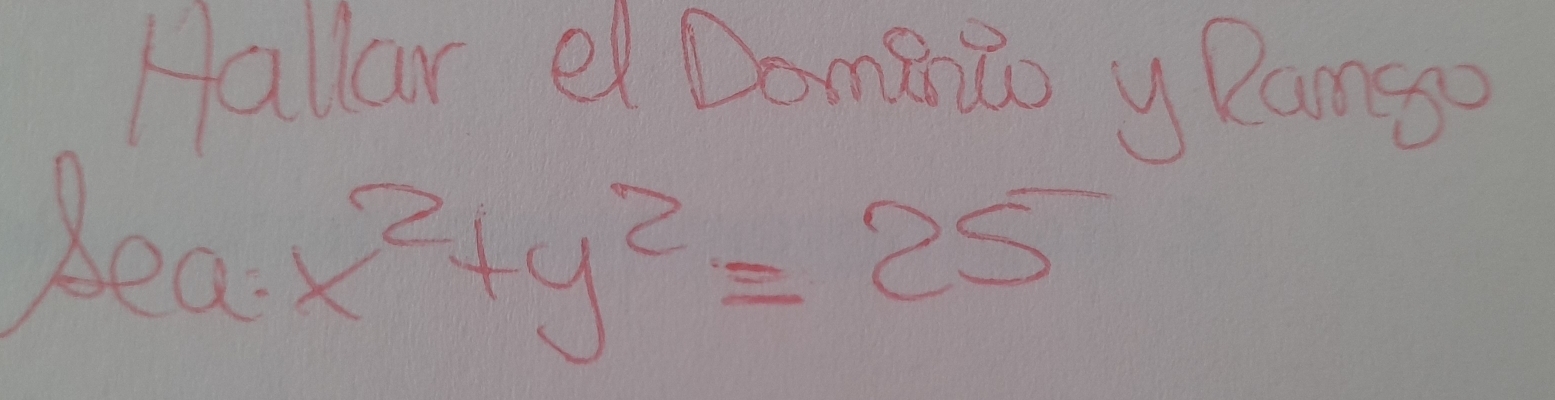 Hallar el Dominio y Rango
Sea: x² + y² = 25